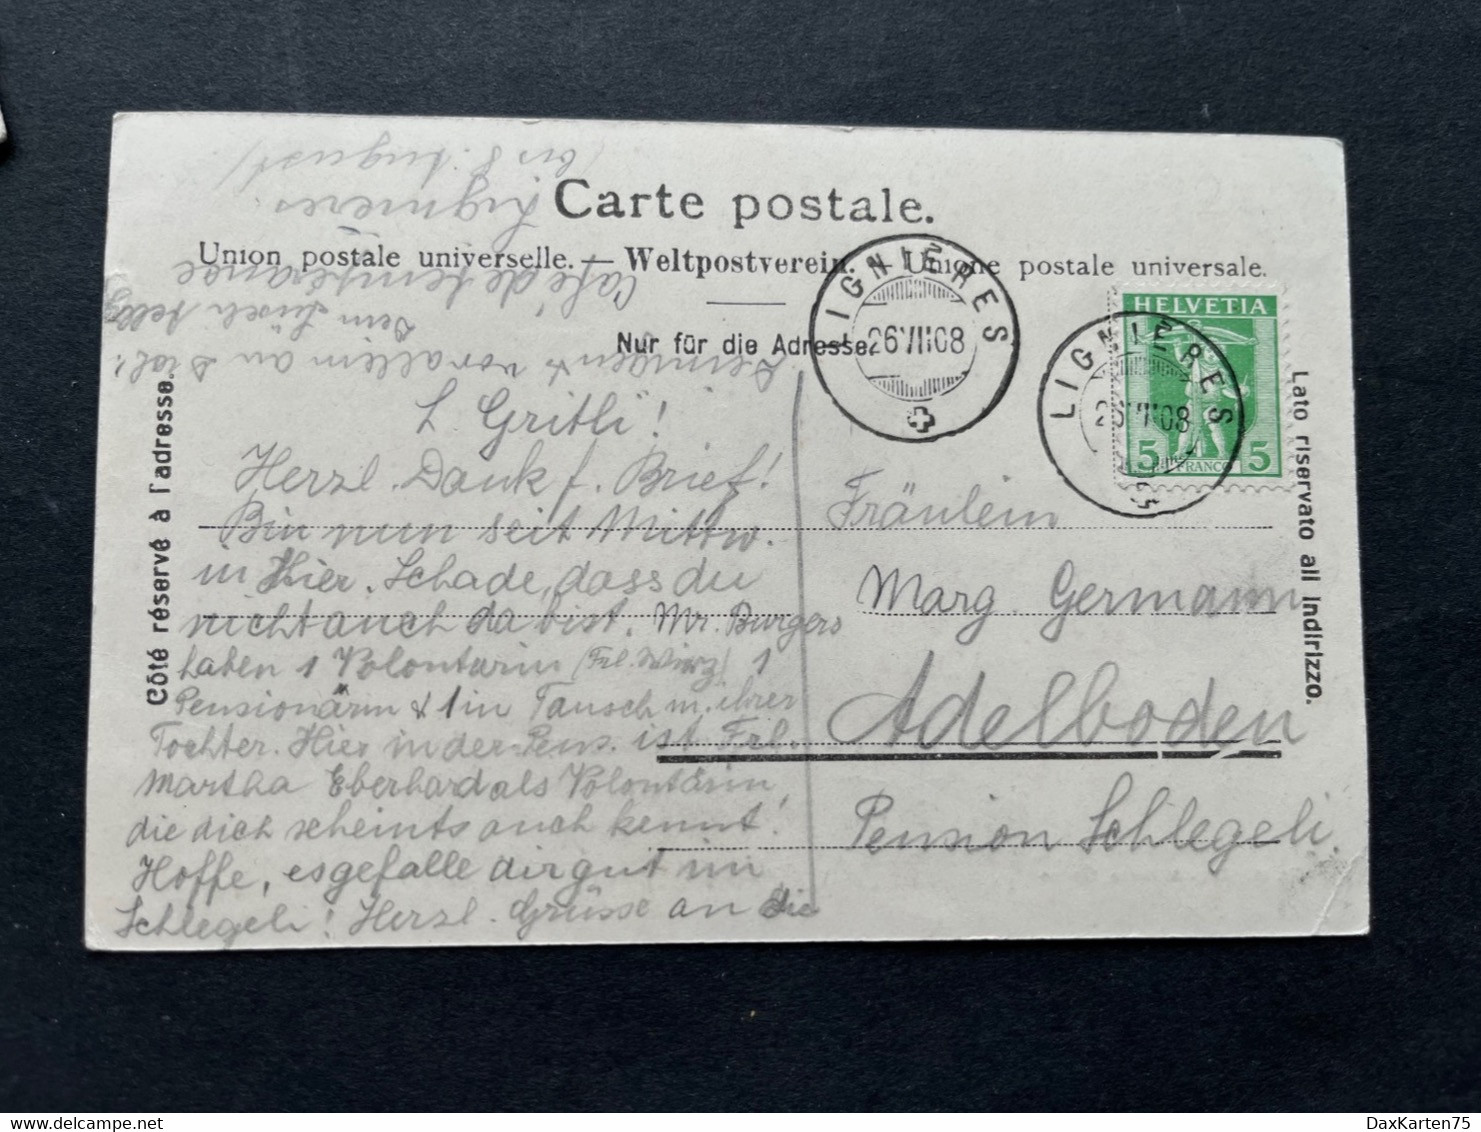 Carte postale.
Union postale universelle. — Weltpostverein. — Unione postale universale.
Nur für die Adresse.
Côté réservé à l'adresse.
Lato riservato all indirizzo.
LIGNIÈRES
26 VII 08
LIGNIÈRES
26 VII 08
HELVETIA
5 FRANCO 5
L Gritli!
Herzl. Dank f. Brief!
Bin nun seit Mittw.
in Hier. Schade, dass du
nicht auch da bist. Mr. Burgers
haben 1 Volontärin (Frl. Wirz) 1
Pensionärin & 1 in Tausch m. ihrer
Tochter. Hier in der Pens. ist Frl.
Martha Eberhard als Volontärin,
die dich scheints auch kennt!
Hoffe, es gefalle dir gut im
Schlegeli! Herzl. Grüsse an die
vor allem an Dich!
Dein
Café de tempérance
Lignières.
(bis 8. August)
Fräulein
Marg. Germann
Adelboden
Pension Schlegeli.
DaxKarten75